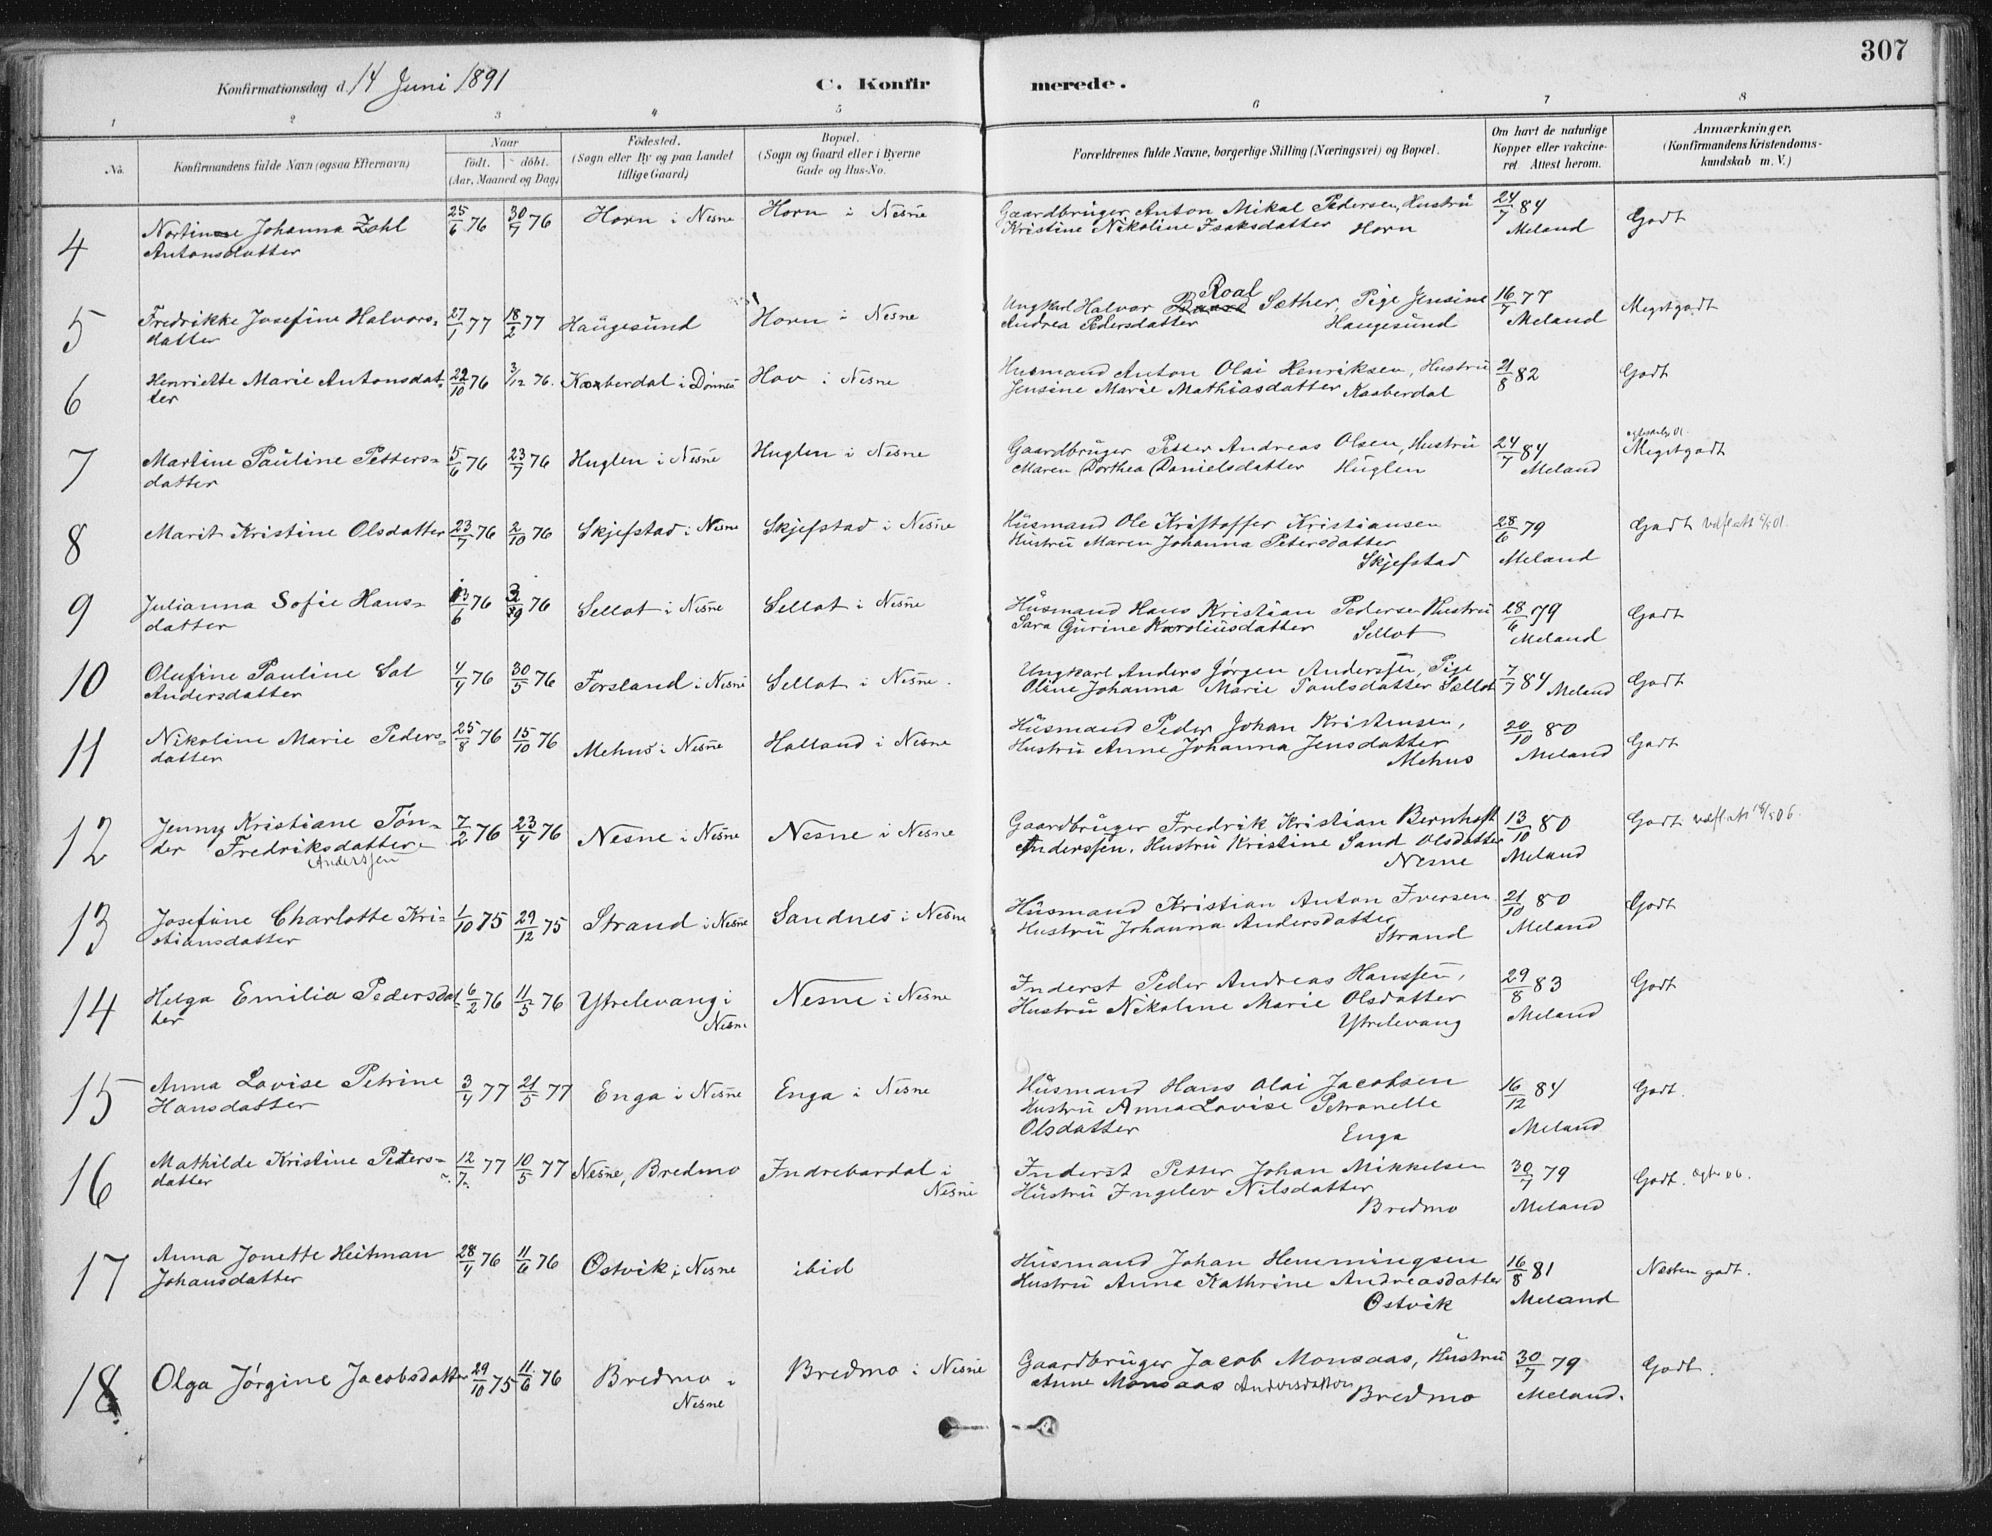 307
Konfirmationsdag d. 14 Juni 1891
C. Konfirmerede.
1 2 3 4 5 6 7 8
No.
Konfirmandens fulde Navn (ogsaa Efternavn)
Naar
født. døbt.
(Aar, Maaned og Dag)
Fødested.
(Sogn eller By og paa Landet
tillige Gaard)
Bopæl.
(Sogn og Gaard eller i Byerne
Gade og Hus-No.
Forældrenes fulde Navne, borgerlige Stilling (Næringsvei) og Bopæl.
Om havt de naturlige
Kopper eller vakcine-
ret Attest herom.
Anmærkninger.
(Konfirmandens Kristendoms-
kundskab m. V.)
4 Johanna Zahl 25/6 76 30/7 76 Horn i Nesne Horn i Nesne Gaardbruger Anton Mikal Pedersen, Hustru 24/7 84 Godt
Antonsdatter Kristine Nikoline Isaksdatter Horn Meland
5 Fredrikke Josefine Halvors- 27/1 77 18/2 77 Haugesund Horn i Nesne Ungkarl Halvor Roal Sæther, Pige Jensine 16/7 77 Megetgodt
datter Andrea Pedersdatter Haugesund Meland
6 Henriette Marie Antonsdat- 22/10 76 3/12 76. Kaaberdal i Dønnes Hov i Nesne Husmand Anton Olai Henriksen, Hustru 21/8 82 Godt
ter Jensine Marie Mathiasdatter Kaaberdal
7 Martine Pauline Petters- 5/6 76 23/7 76 Huglen i Nesne Huglen i Nesne Gaardbruger Petter Andreas Olsen, Hustru 24/7 84 Megetgodt
datter Maren Dorthea Danielsdatter Huglen Meland
8 Marit Kristine Olsdatter 23/7 76 2/10 76 Skjefstad i Nesne Skjefstad i Nesne Husmand Ole Kristoffer Kristiansen 28/6 79 Godt
Hustru Maren Johanna Petersdatter
Skjefstad Meland
9 Julianna Sofie Hans- 13/6 76 76 Sellot i Nesne Sellot i Nesne Husmand Hans Kristian Pedersen Hustru 28/6 79 Godt
datter Sara Gurine Karoliusdatter Sellot Meland
10 Olufine Pauline Sal 4/4 76 30/5 76 Forsland i Nesne Sellot i Nesne. Ungkarl Anders Jørgen Anderssen, Pige 7/7 84 Meland Godt
Andersdatter Oline Johanna Marie Paulsdatter Sællot
11 Nikoline Marie Peders- 25/8 76 15/10 76 Mehus i Nesne Halland i Nesne Husmand Peder Johan Kristensen, 20/10 80 Godt
datter Hustru Anne Johanna Jensdatter Meland
Mehus
12 Jenny Kristiane Tøn- 7/2 76 23/4 76 Nesne i Nesne Nesne i Nesne Gaardbruger Fredrik Kristian Bernhoft 13/10 80 Godt
der Fredriksdatter Anderssen. Hustru Kristine Sand Olsdatter
(Anderssen Nesne Meland
13 Josefine Charlotte Kri- 1/10 75 29/12 75 Strand i Nesne Sandnes i Nesne Husmand Kristian Anton Iversen 21/10 80 Godt
stiansdatter Hustru Johanna Andersdatter Meland
Strand
14 Helga Emilia Pedersdat- 6/2 76 11/5 76 Ytrelevang i Nesne i Nesne Inderst Peder Andreas Hanssen, 29/8 83 Godt
ter Nesne Hustru Nikoline Marie Olsdatter Meland
Ytrelevang
15 Anna Lovise Petrine 3/4 77 21/5 77 Enga i Nesne Enga i Nesne Husmand Hans Olai Jacobsen 16/12 84 Godt.
Hansdatter Hustru Anna Lovise Petronelle
Olsdatter Enga Meland
16 Mathilde Kristine Peters- 12/7 77 10/5 77 Nesne, Bredmo Indrebardal i Inderst Petter Johan Mikkelsen 30/7 79 Godt.
datter Nesne Hustru Ingelev Nilsdatter
Bredmo Meland
17 Anna Jonette Heitman 28/4 76 11/6 76 Østvik i Nesne ibid Husmand Johan Hemmingsen 16/8 81 Næsten godt.
Johansdatter Hustru Anne Kathrine Andreasdatter
Østvik Meland
18 Olga Jørgine Jacobsdatter 29/10 75 11/6 76 Bredmo i Bredmo i Nesne Gaardbruger Jacob Monsaas, Hustru 30/7 79 Godt.
Nesne Anne Monsaas Andersdatter Bredmo Meland.